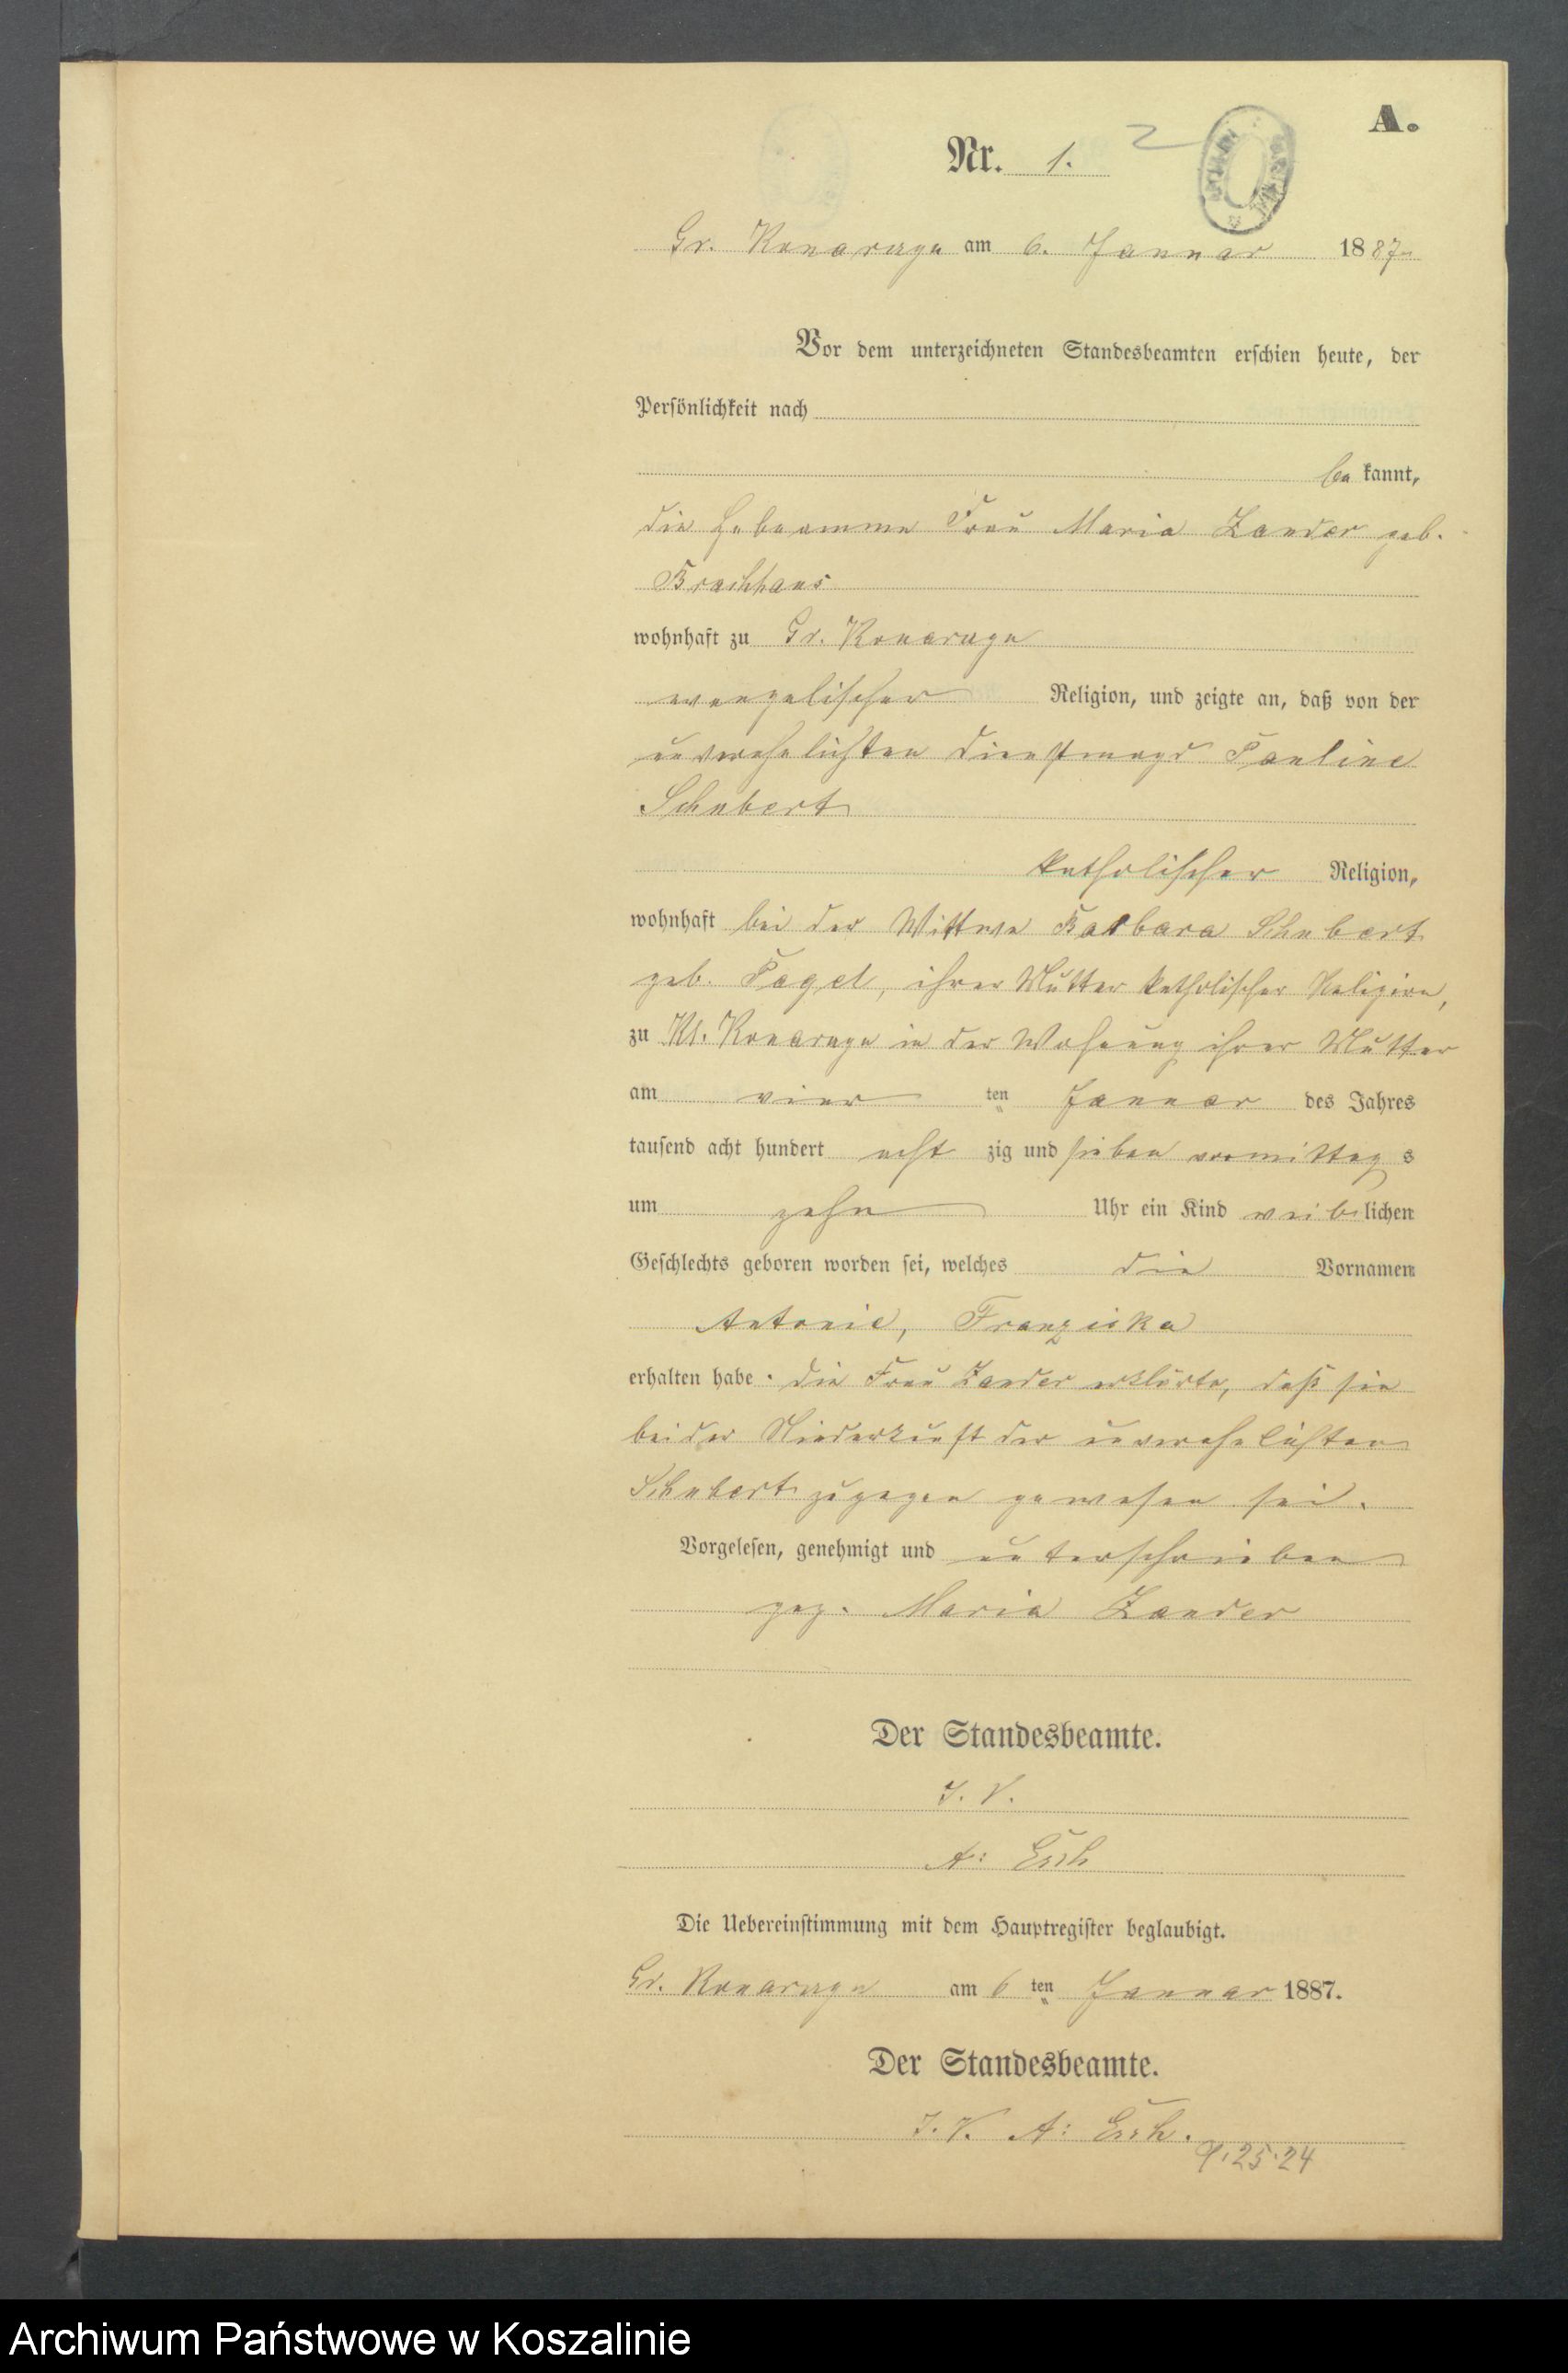 A.
Nr. 1.
2
Gr. Konarzyn am 6. Januar 1887
Vor dem unterzeichneten Standesbeamten erschien heute, der
Persönlichkeit nach
be kannt,
die Hebeamme Frau Maria Zander geb.
wohnhaft zu Gr. Konarzyn
evangelischer Religion, und zeigte an, daß von der
unverehelichten Dienstmagd Pauline
Schubert
katholischer Religion,
wohnhaft bei der Wittwe Barbara Schubert
geb. Pagel, ihrer Mutter katholischer Religion,
zu Kl. Konarzyn in der Wohnung ihrer Mutter
am vier ten Januar des Jahres
tausend acht hundert acht zig und sieben vormittag s
um zehn Uhr ein Kind weib lichen
Geschlechts geboren worden sei, welches die Vornamen
Antonie, Franziska
erhalten habe. Die Frau Zander erklärte, daß sie
bei der Niederkunft der unverehelichten
Schubert zugegen gewesen sei.
Vorgelesen, genehmigt und unterschrieben
gez. Maria Zander
Der Standesbeamte.
I. V.
A:
Die Uebereinstimmung mit dem Hauptregister beglaubigt.
Gr. Konarzyn am 6 ten Januar 1887.
Der Standesbeamte.
I. V. A:
9.25.24
Archiwum Państwowe w Koszalinie